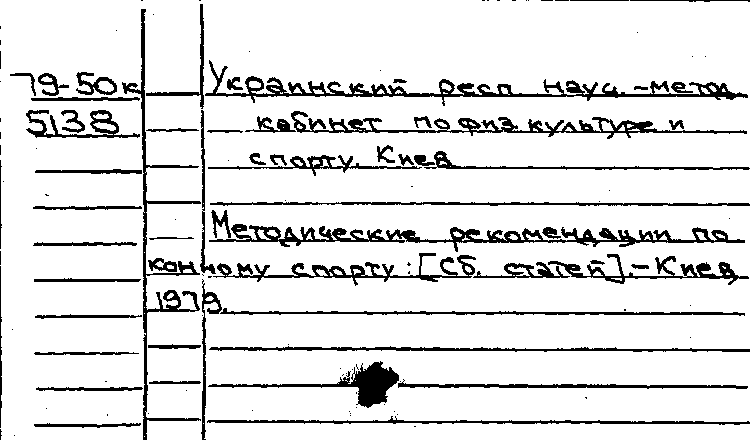 79-50к Украинский респ. науч.-метод
5138 кабинет по физ. культуре и
спорту. Киев
Методические рекомендации по
конному спорту: [Сб. статей].-Киев,
1979.